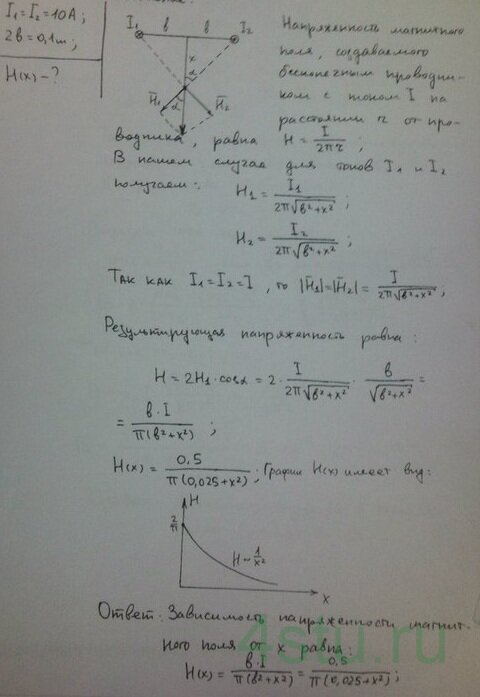 I₁=I₂=10А;
2в=0,1м;
H(x)-?
I₁ в в I₂
x
α
H̅₁ α H̅₂
Напряженность магнитного
поля, создаваемого
бесконечным проводни-
ком с током I на
расстоянии r от про-
водника, равна H = I/2πr;
В нашем случае для токов I₁ и I₂
получаем:
H₁ = I₁/2π√в²+x²;
H₂ = I₂/2π√в²+x²;
Так как I₁=I₂=I, то |H̅₁|=|H̅₂|= I/2π√в²+x²;
Результирующая напряженность равна:
H = 2H₁·cosα = 2· I/2π√в²+x² · в/√в²+x² =
= в·I/π(в²+x²);
H(x) = 0,5/π(0,025+x²); График H(x) имеет вид:
H
2/π
H~1/x²
x
Ответ: Зависимость напряженности магнит-
ного поля от x равна:
H(x) = в·I/π(в²+x²) = 0,5/π(0,025+x²);
4stu.ru